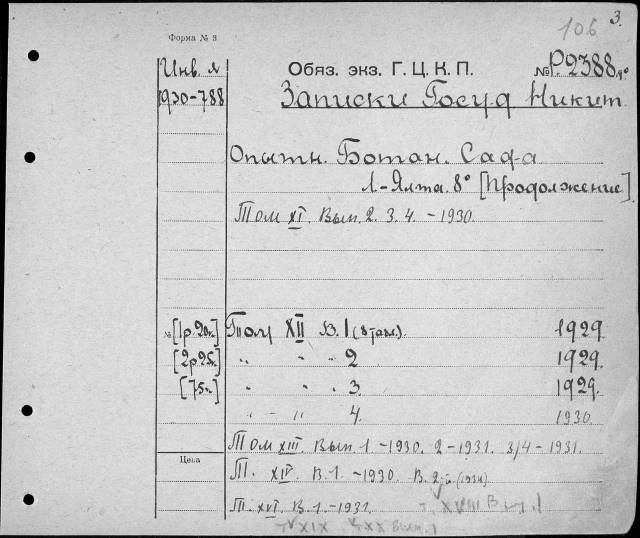 106 3.
Форма № 3
Инв. я
1930-788
Обяз. экз. Г. Ц. К. П. № Р.2388
Записки Госуд Никит
Опытн. Ботан. Сада
Л.-Ялта. 8° [Продолжение]
Том XI. Вып. 2. 3. 4. - 1930.
№ [1р.20к] Тому XII В. 1 1929.
[2р25к] " " " 2 1929.
[75к] " " " 3. 1929.
" - " 4. 1930.
Том XIII. Вып 1 - 1930. 2 - 1931. 3/4 - 1931.
Цена
Т. XIV. В. 1. - 1930 В. 2 (1934)
Т. XVI. В. 1. - 1931. т. XVIII Вып. 1
т. XIX, т. XX Вып. 1